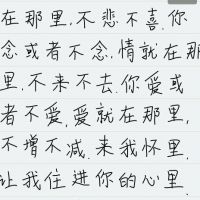 在那里,不悲不喜.你
念或者不念,情就在那
里.不来不去.你爱或
者不爱.爱就在那里,
不增不减.来我怀里,
让我住进你的心里.